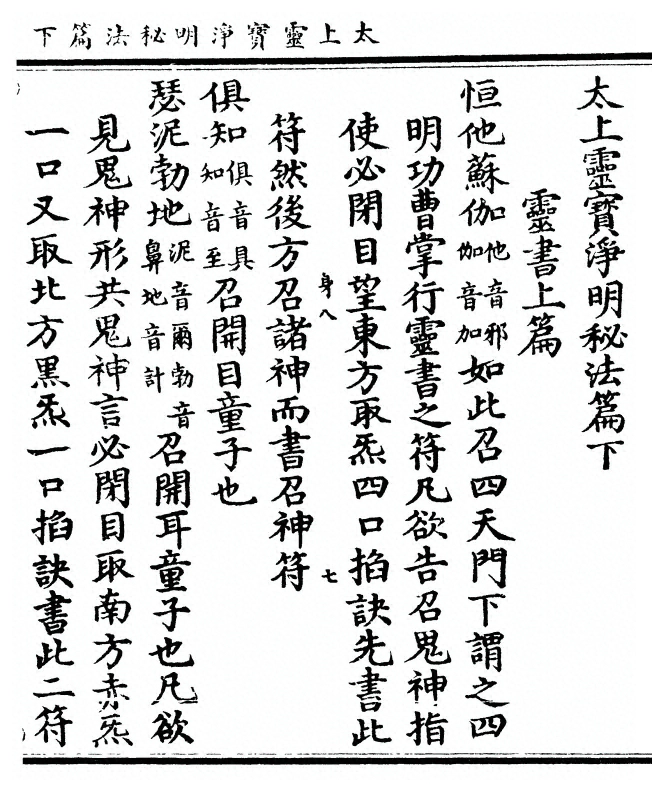 太上靈寶淨明秘法篇下
太上靈寶淨明秘法篇下
靈書上篇
恒他蘇伽他音邪伽音加如此召四天門下謂之四
明功曹掌行靈書之符凡欲告召鬼神指
使必閉目望東方取炁四口掐訣先書此
身八
七
符然後方召諸神而書召神符
俱知俱音具知音至召開目童子也
瑟泥勃地泥音爾勃音鼻地音計召開耳童子也凡欲
見鬼神形共鬼神言必閉目取南方赤炁
一口又取北方黑炁一口掐訣書此二符